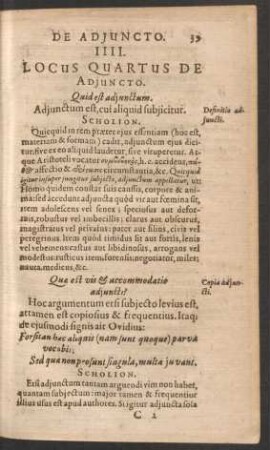 DE ADJUNCTO. 35
IIII.
LOCUS QUARTUS DE
ADJUNCTO.
Quid est adjunctum.
Adjunctum est, cui aliquid subjicitur. Definitio adjuncti.
SCHOLION.
Quicquid in rem præter ejus essentiam (hoc est,
materiam & formam) cadit, adjunctum ejus dicitur,
sive ex eo aliquid laudetur, sive vituperetur. Atque
Aristoteli vocatur h. e. accidens,
affectio & circumstantia, &c. Quicquid
subjecto, adjunctum appellatur, ut:
Homo quidem constat suis caussis, corpore & anima:
sed accedunt adjuncta quòd vir aut fœmina sit,
item adolescens vel senex: speciosus aut deformis,
robustus vel imbecillis: clarus aut obscurus,
magistratus vel privatus: pater aut filius, civis vel
peregrinus. Item quòd timidus sit aut fortis, lenis
vel vehemens: castus aut libidinosus, arrogans vel
modestus: rusticus item, forensis, negotiator, miles,
nauta, medicus, &c.
Quæ est vis & accommodatio Copia adjuncti.
adjuncti?
Hoc argumentum etsi subjecto levius est,
attamen est copiosius & frequentius. Itaque
de ejusmodi signis ait Ovidius:
Forsitan hæc aliquis (nam sunt quoque) parva
vocabit:
Sed quæ non prosunt singula, multa juvant.
SCHOLION.
Etsi adjunctum tantam arguendi vim non habet,
quantam subjectum: major tamen & frequentior
illius usus est apud authores. Si igitur adjuncta sola
C 2